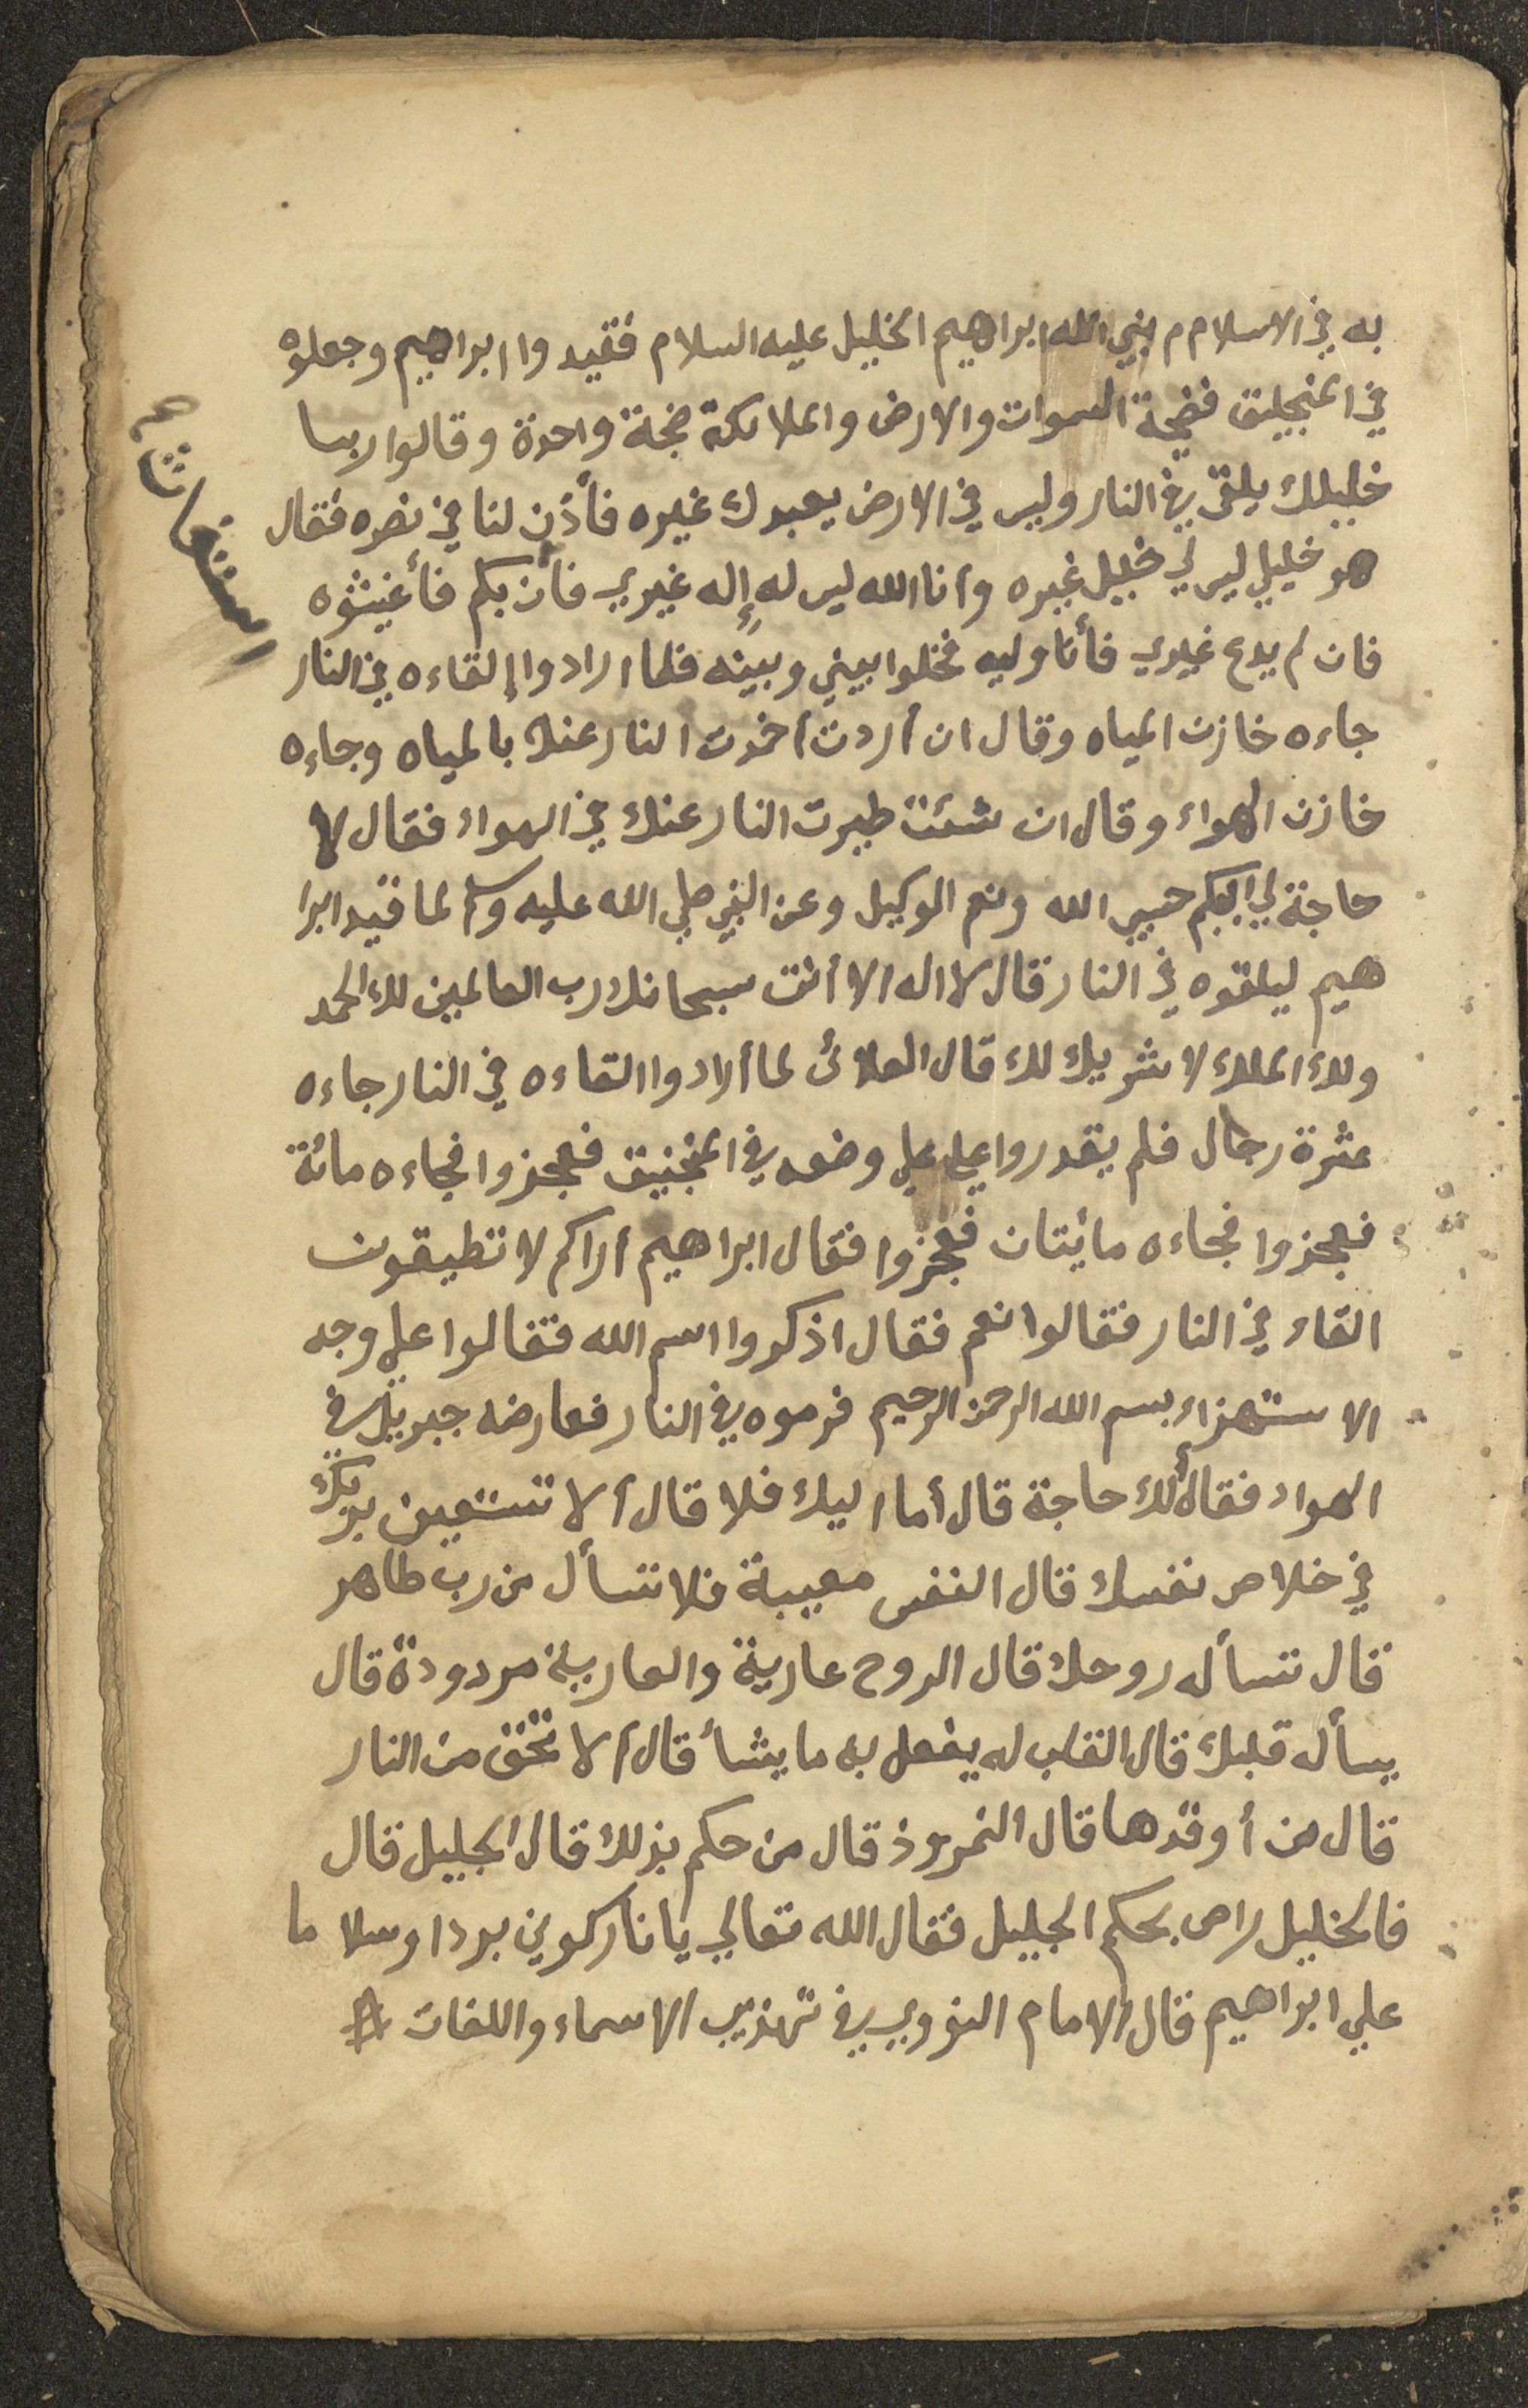 به في الاسلام م بني الله ابراهيم الخليل عليه السلام فقيدوا ابراهيم وجعلوه
في المنجليق فضجة السموات والارض والملائكة ضجة واحدة وقالوا ربنا
خليلك يلقى في النار وليس في الارض يعبدك غيره فأذن لنا في نصره فقال
هو خليلي ليس لي خليل غيره وانا الله ليس له إله غيري فأن بكم فأغيثوه
فان لم يدع غيري فأنا وليه فخلوا بيني وبينه فلما ارادوا إلقاءه في النار
جاءه خازن المياه وقال ان أردت أخمدت النار عنك بالمياه وجاءه
خازن الهواء وقال ان شئت طيرت النار عنك في الهواء فقال لا
حاجة لي اليكم حسبي الله ونعم الوكيل وعن النبي صلي الله عليه وسلم لما قيد ابرا
هيم ليلقوه في النار قال لا اله الا أنت سبحانك رب العالمين لك الحمد
ولك الملك لا شريك لك قال العلائ لما أرادوا القاءه في النار جاءه
عشرة رجال فلم يقدروا علي علي وضعه في المنجنيق فعجزوا فجاءه مائة
فعجزوا فجاءه مائيتان فعجزوا فقال ابراهيم أراكم لا تطيقون
القاء في النار فقالوا نعم فقال اذكروا اسم الله فقالوا علي وجه
الاستهزاء بسم الله الرحمن الرحيم فرموه في النار فعارضه جبريل في
الهواء فقال ألك حاجة قال أما اليك فلا قال ألا تستعين بربك
في خلاص نفسك قال النفس معيبة فلا تسأل من رب طاهر
قال تسأله روحك قال الروح عارية والعارية مردودة قال
يسأله قلبك قال القلب له يفعل به ما يشأ قال ألا تخف من النار
قال من أوقدها قال النمروذ قال من حكم بذلك قال الجليل قال
فالخليل راص بحكم الجليل فقال الله تعالي يا نار كوني بردا وسلاما
علي ابراهيم قال الامام النووي في تهذيب الاسماء واللغات